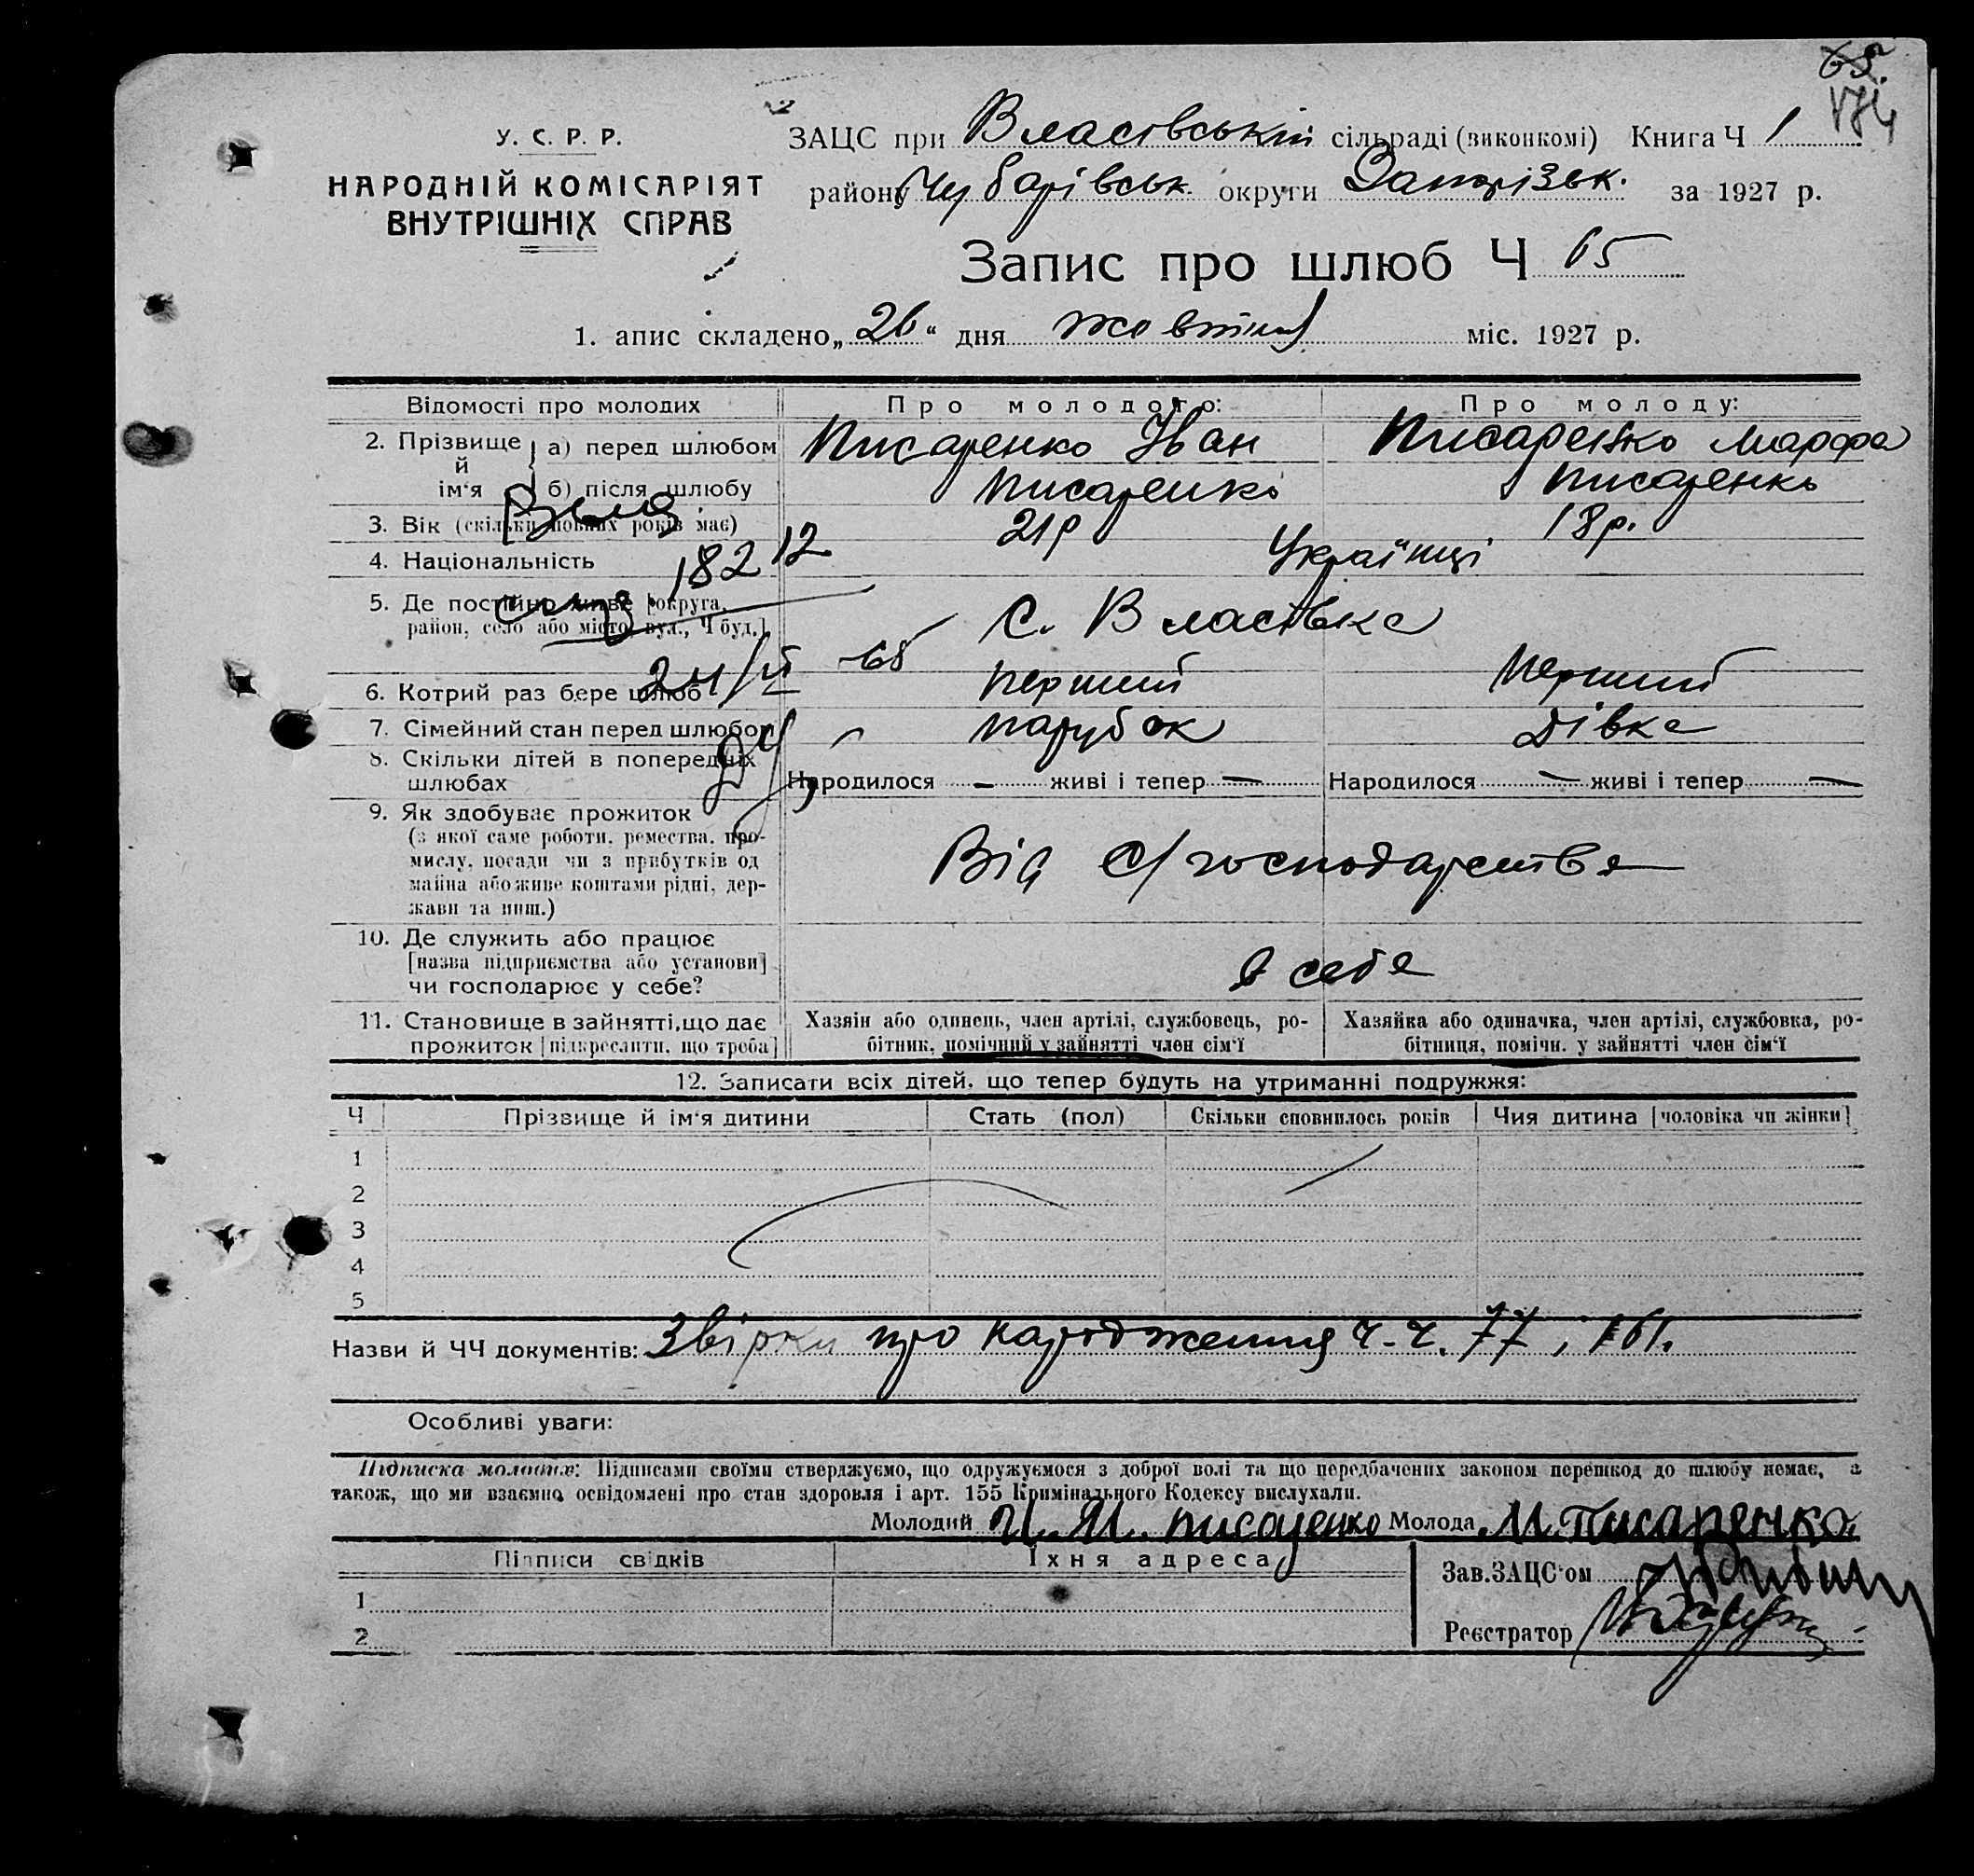 65.
174
У. С. Р. Р.
НАРОДНІЙ КОМІСАРІЯТ
ВНУТРІШНІХ СПРАВ
ЗАЦС при Власівській сільраді (виконкомі) Книга Ч 1
району Чубарівськ. округи Запорізьк. за 1927 р.
Запис про шлюб Ч 65
1. апис складено „26“ дня жовтня міс. 1927 р.
Відомості про молодих Про молодого: Про молоду:
2. Прізвище й ім‘я а) перед шлюбом Писаренко Іван Писаренко Марфа
б) після шлюбу Писаренко Писаренко
3. Вік (скільки повних років має) 21р 18р.
4. Національність Українці
182 12
5. Де постійно живе [округа,
район, село або місто, вул., Ч буд.] С. Власівка
24/VI -65
6. Котрий раз бере шлюб перший перший
7. Сімейний стан перед шлюбом парубок дівка
8. Скільки дітей в попередніх
шлюбах Народилося — живі і тепер — Народилося — живі і тепер —
9. Як здобуває прожиток
(з якої саме роботи, ремества, про-
мислу, посади чи з прибутків од
майна або живе коштами рідні, дер-
жави та инш.) Від с/господарства
10. Де служить або працює
[назва підприємства або установи]
чи господарює у себе? в себе
11. Становище в зайнятті, що дає
прожиток [підкреслити, що треба]
Хазяін або одинець, член артілі, службовець, ро-
бітник, помічний у зайнятті член сім‘ї
Хазяйка або одиначка, член артілі, службовка, ро-
бітниця, помічн. у зайнятті член сім‘ї
12. Записати всіх дітей, що тепер будуть на утриманні подружжя:
Ч Прізвище й ім‘я дитини Стать (пол) Скільки сповнилось років Чия дитина [чоловіка чи жінки]
1
2
3
4
5
Назви й ЧЧ документів: Звірки про народження ч-ч. 77, 161.
Особливі уваги:
Підписка молодих: Підписами своїми стверджуємо, що одружуємося з доброї волі та що передбачених законом перешкод до шлюбу немає, а
також, що ми взаємно освідомлені про стан здоровля і арт. 155 Кримінального Кодексу вислухали.
Молодий И. Я. писаренко Молода М. Писаренко.
Підписи свідків Їхня адреса
Зав. ЗАЦС‘ом
1
Реєстратор
2